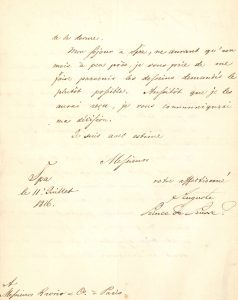 de le donner.
Mon séjour à Spa, ne durant qu'un
mois à peu près, je vous prie de me
faire parvenir les desseins demandés le
plutôt possible. Aussitôt que je les
aurai reçu, je vous communiquerai
ma décision.
Je suis avec estime
Messieurs
Spa
le 11 Juillet
1816.
votre affectionné
Auguste
Prince de Prusse
A
Messieurs à Paris